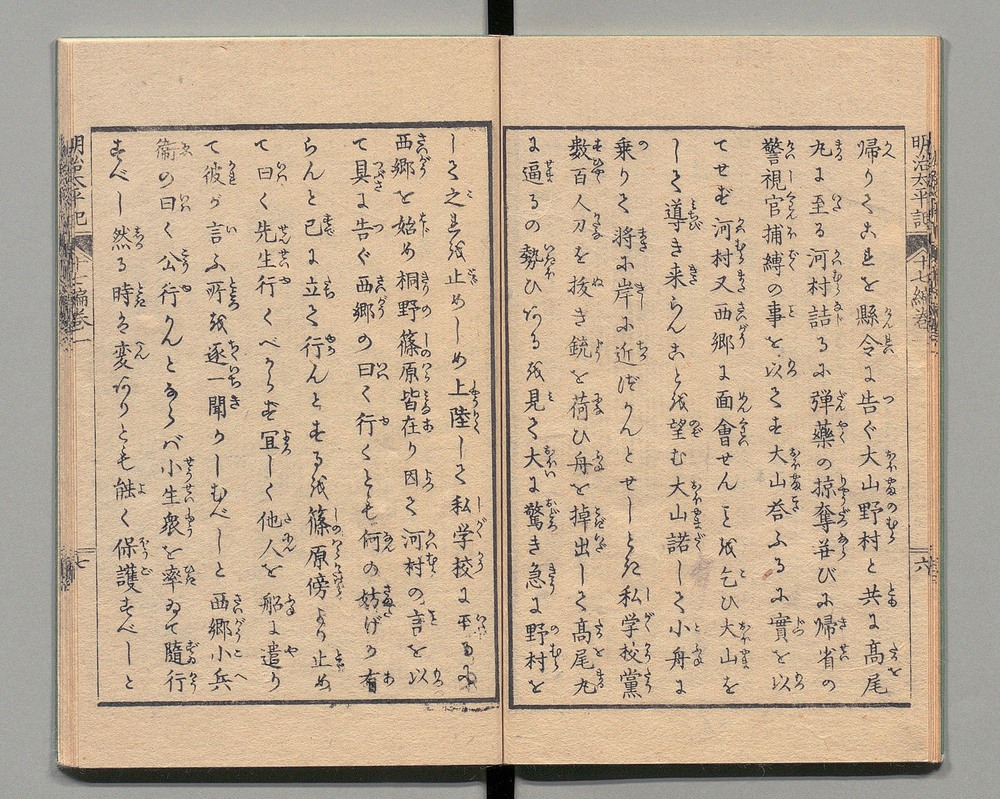 明治太平記 十七編巻一 六
帰りてこれを縣令に告ぐ大山野村と共に高尾
丸に至る河村詰るに弾藥の掠奪并びに帰省の
警視官捕縛の事を以てす大山答ふるに實を以
てせず河村又西郷に面會せんことを乞ひ大山を
して導き来らんことを望む大山諾して小舟に
乗りて将に岸に近づかんとせしとき私学校黨
数百人刀を抜き銃を荷ひ舟を掉出して高尾丸
に逼るの勢ひあるを見て大に驚き急に野村を
して之れを止めしめ上陸して私学校に至るに
西郷を始め桐野篠原皆在り因て河村の言を以
て具に告ぐ西郷の曰く行くとも何の妨げか有
らんと已に立て行んとするを篠原傍より止め
て曰く先生行くべからず宜しく他人を船に遣り
て彼が言ふ所を逐一聞かしむべしと西郷小兵
衞の曰く公行かんとならバ小生衆を率ゐて隨行
すべし然る時は変ありとも能く保護すべしと
明治太平記 十七編巻一 七